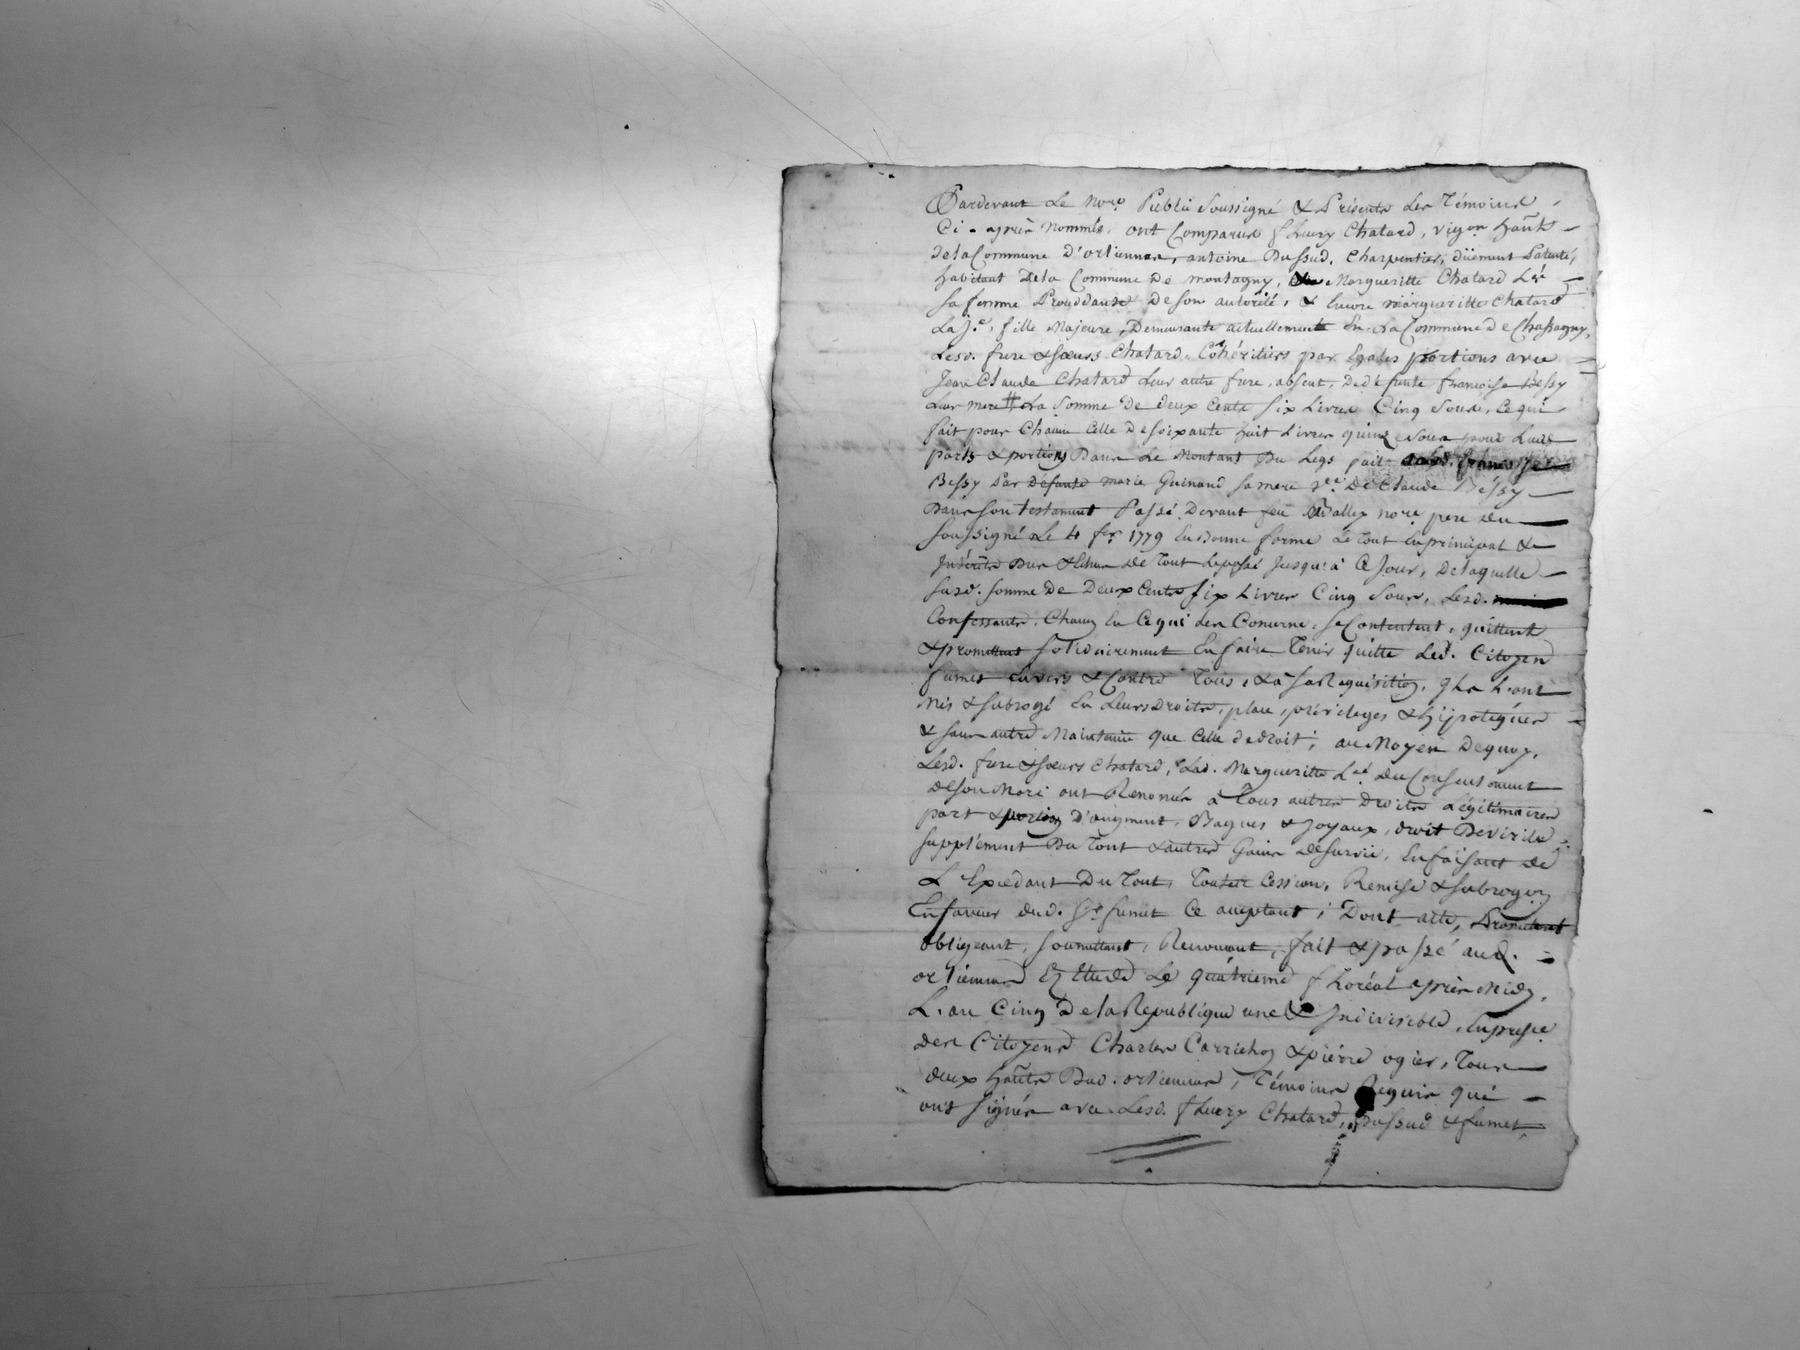 Pardevant Le no.re Public Soussigné & Présents Les Témoins
Ci-après Nommés, ont Comparus fleury Chatard, vigon hants
de la Commune d'orliennas, antoine Dussud, Charpentier, duëment Patenté,
habitant De la Commune De montagny, Margueritte Chatard L'né
sa femme Procédante De son autorité, & Encore margueritte Chatard
La J.e, fille Majeure, Demeurante actuellement En La Commune De Chassagny,
Lesd. frere & soeurs Chatard Cohéritiers par Egales portions avec
Jean Claude Chatard Leur autre frere, absent, De Défunte françoise Bessy
Leur mere # La Somme De deux Cents six Livres Cinq Sous, Ce qui
fait pour Chacun Celle De soixante huit Livres quinze sous pour Leurs
parts & portions Dans Le Montant Du Legs fait
Bessy Par Défunte marie Guinand sa mere v.e De Claude Bessy
Dans son testament Passé Devant feu no.re pere du
Soussigné Le 4 f.er 1779 En Bonne forme Le tout En principal &
Intérêts Dus & Echus De tout Le passé Jusqu'à Ce Jour, De laquelle
susd. somme De Deux Cents six Livres Cinq Sous, Lesd.
Confessants, Chacun En Ce qui Les Concerne, se Contentent, quittent
& promettent solidairement En faire Tenir quitte Led. Citoyen
fumet Envers & Contre Tous, & à sa Requisition, L'ont
Mis & subrogé En Leurs Droits, place, privileges & hÿpoteques
& sans autre Maintenue que Celle de droit; au Moyen Dequoy,
Lesd. frere & soeurs Chatard, Lad. Margueritte L'né Du Consentement
De son Mari ont Renoncés à Tous autres Droits Légitimaires
part & portion D'augment, Bagues & Joyaux, droit De virile,
supplément Du tout & autres Gains De survie, En faisant de
L'Excédant Du tout, Toute Cession, Remise & subrogon
En faveur dud. S.r fumet Ce acceptant; Dont acte, Promettant
obligeant, soumettant, Renonçant, fait & passé aud.
orliennas En Etude Le quatrieme floréal après Midy,
L'an Cinq De la Republique une & Indivisible, En presce
des Citoyens Charles Carrichon & pierre ogier, tous
deux hants Dud. orliennas, Témoins Requis qui
ont signés avec Lesd. fleury Chatard, Dussud & fumet